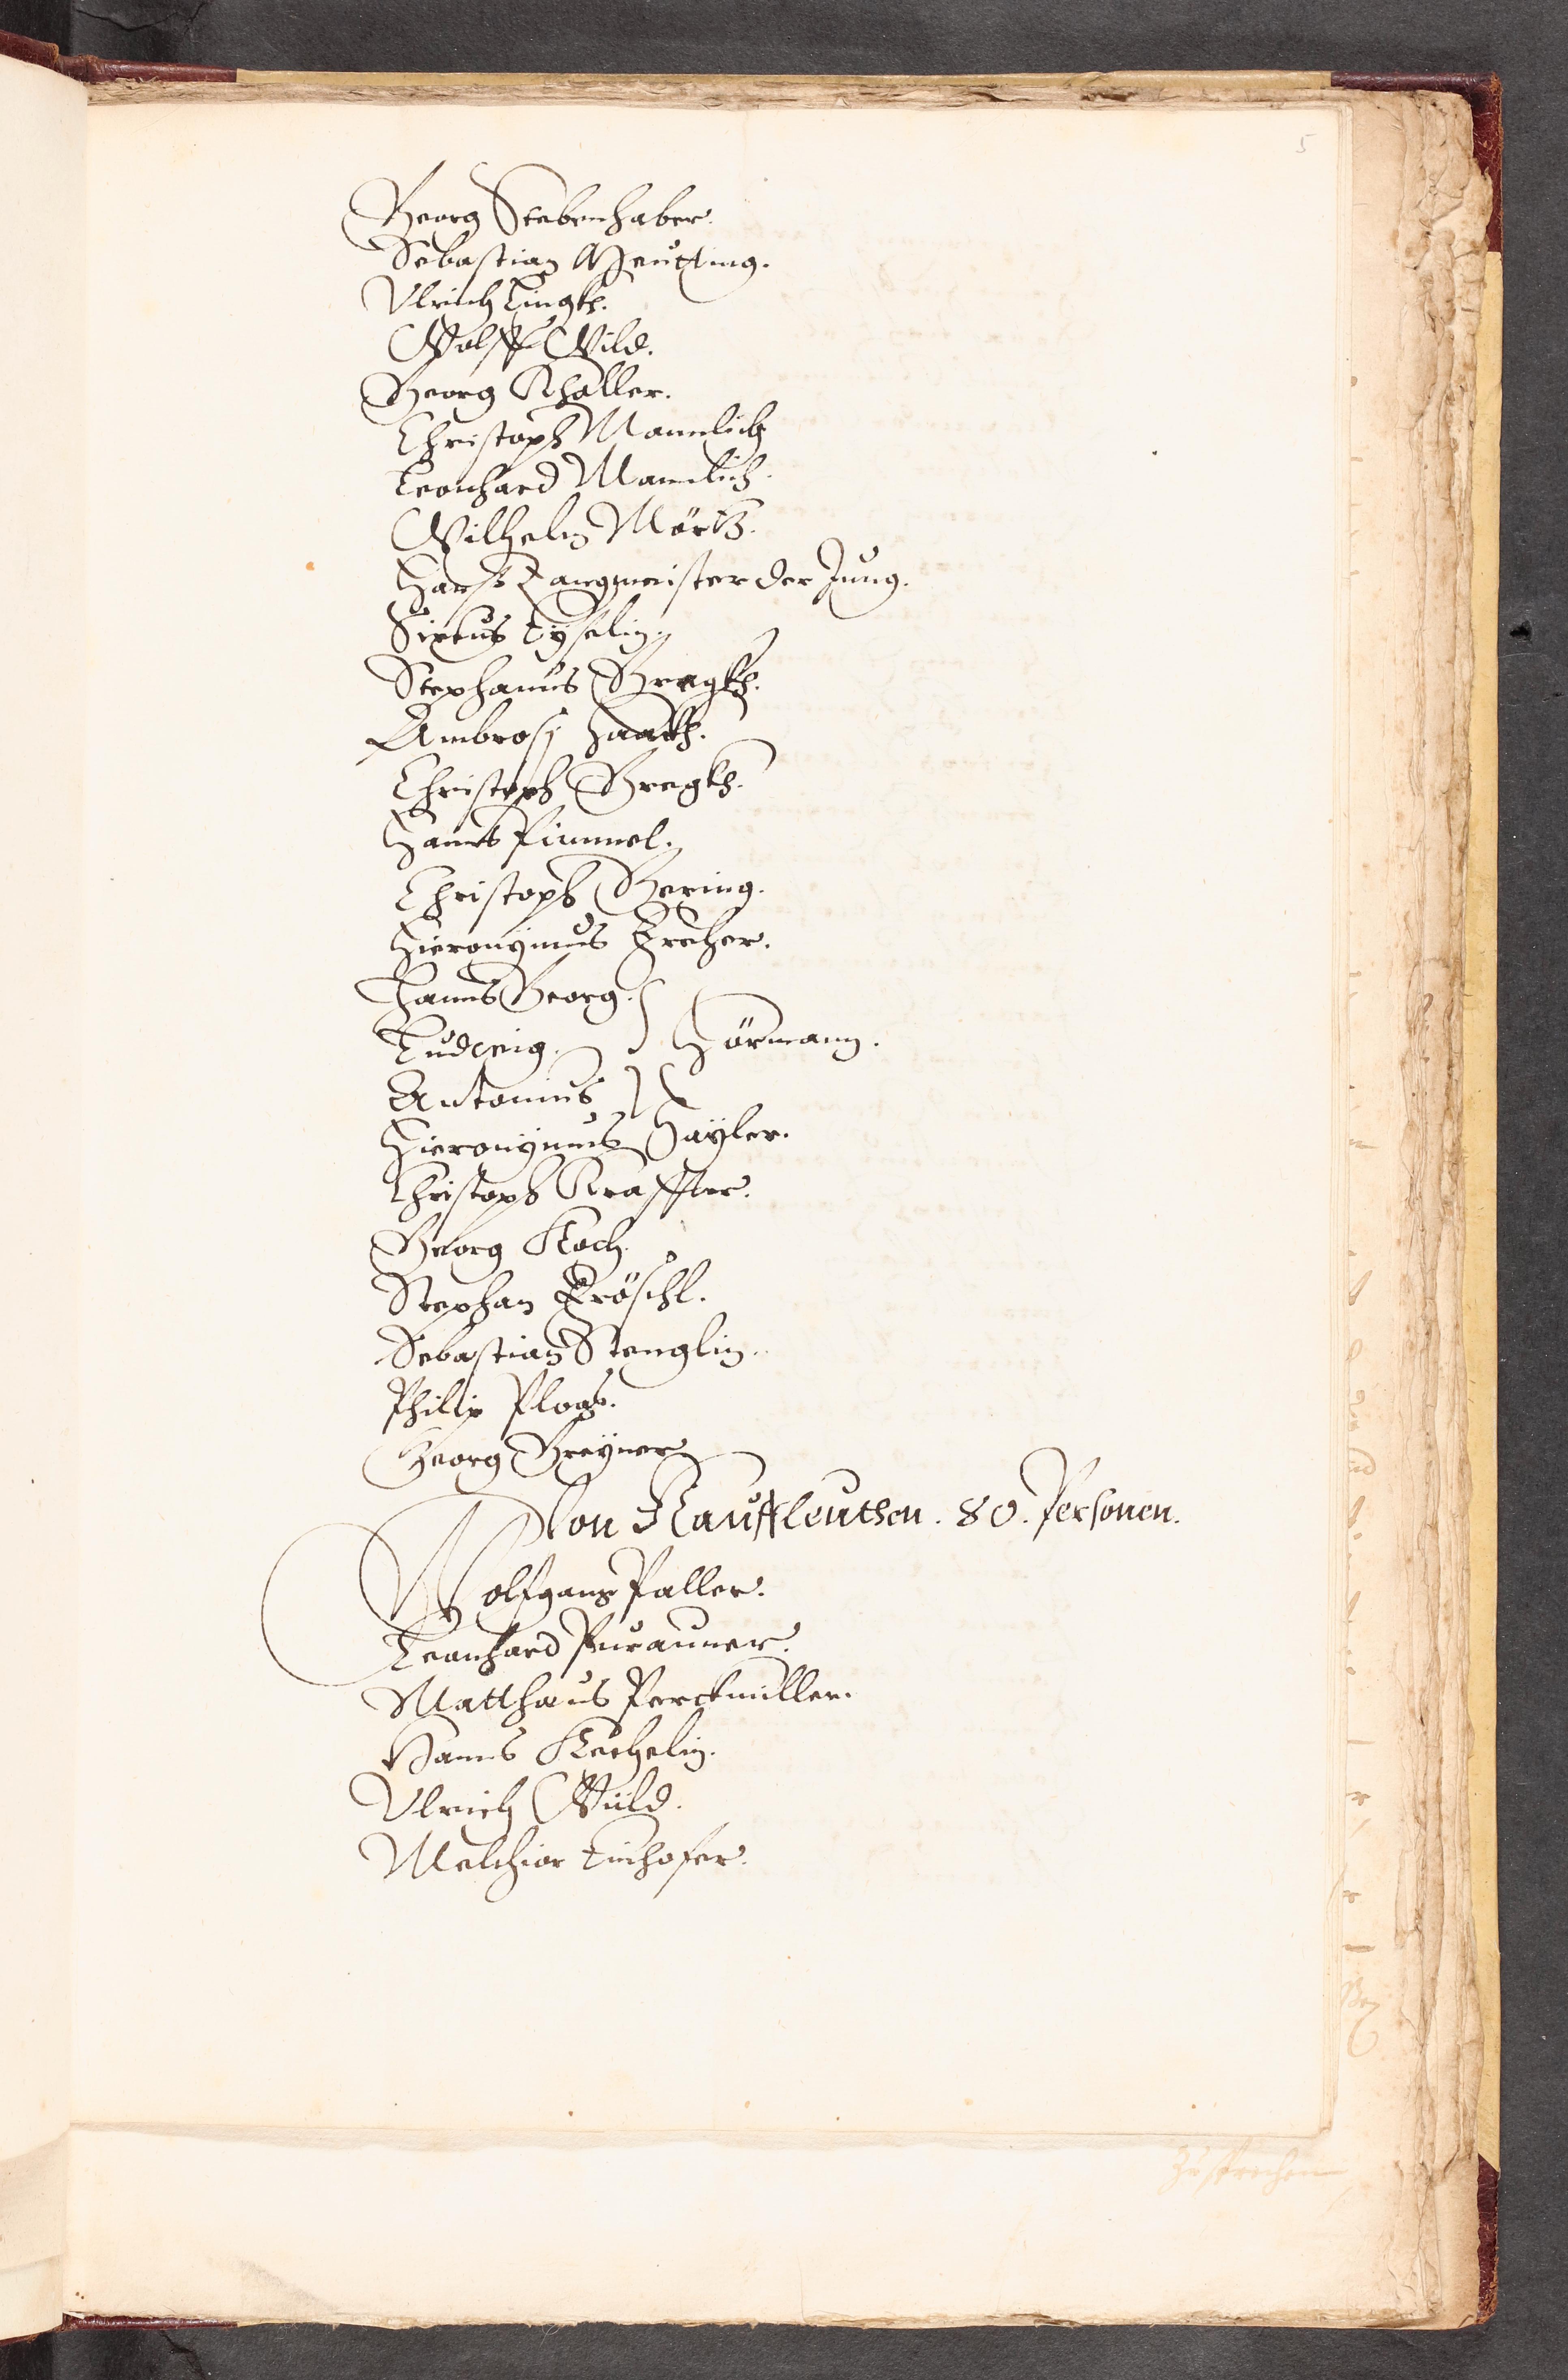 5
Georg Stebenhaber.
Sebastian Neutting.
Ulrich Lingkh.
Wolff Wild.
Georg Khaller.
Christoph Mannlich
Leonhard Mannlich.
Wilhelm Mörtz.
Hanß Zangmeister der Jung.
Sixtus Eyselin.
Stephanus Gregkh.
Ambrosi
Christoph Gregkh.
Hanns Pimmel.
Christoph Gering.
Hieronymus Kreher.
Hanns Georg.
Ludwig. Hörmann.
Antonius
Hieronymus Hayler.
Christoph Kraffter.
Georg Koch.
Stephan Kröschl.
Sebastian Stenglin.
Philip
Georg Greyner
Von Kauffleuthen. 80. Personen.
Wolfgang Paller.
Leonhard Puraunner.
Matthaus Perckmiller.
Hanns Kechelin.
Ulrich Wild.
Melchior Linhofer.